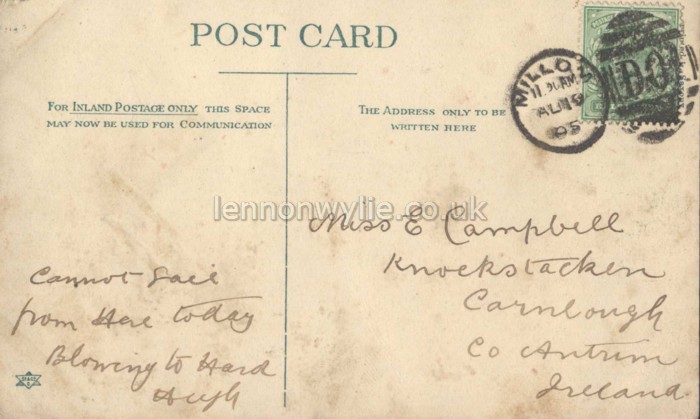 POST CARD
FOR INLAND POSTAGE ONLY THIS SPACE
MAY NOW BE USED FOR COMMUNICATION
THE ADDRESS ONLY TO BE
WRITTEN HERE
MILLOM
AU 19
05
lennonwylie.co.uk
Miss E Campbell
Knockstacken
Carnlough
Co Antrim
Ireland
Cannot Sail
from Here today
Blowing to Hard
Hugh